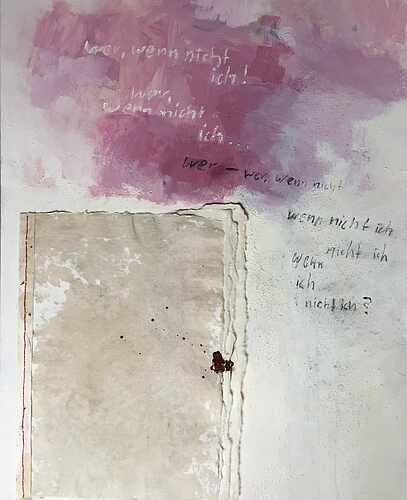 wer, wenn nicht
ich!
wer,
wenn nicht
ich...
wer – wer, wenn nicht
wenn nicht ich
nicht ich
wenn
ich
nicht ich?